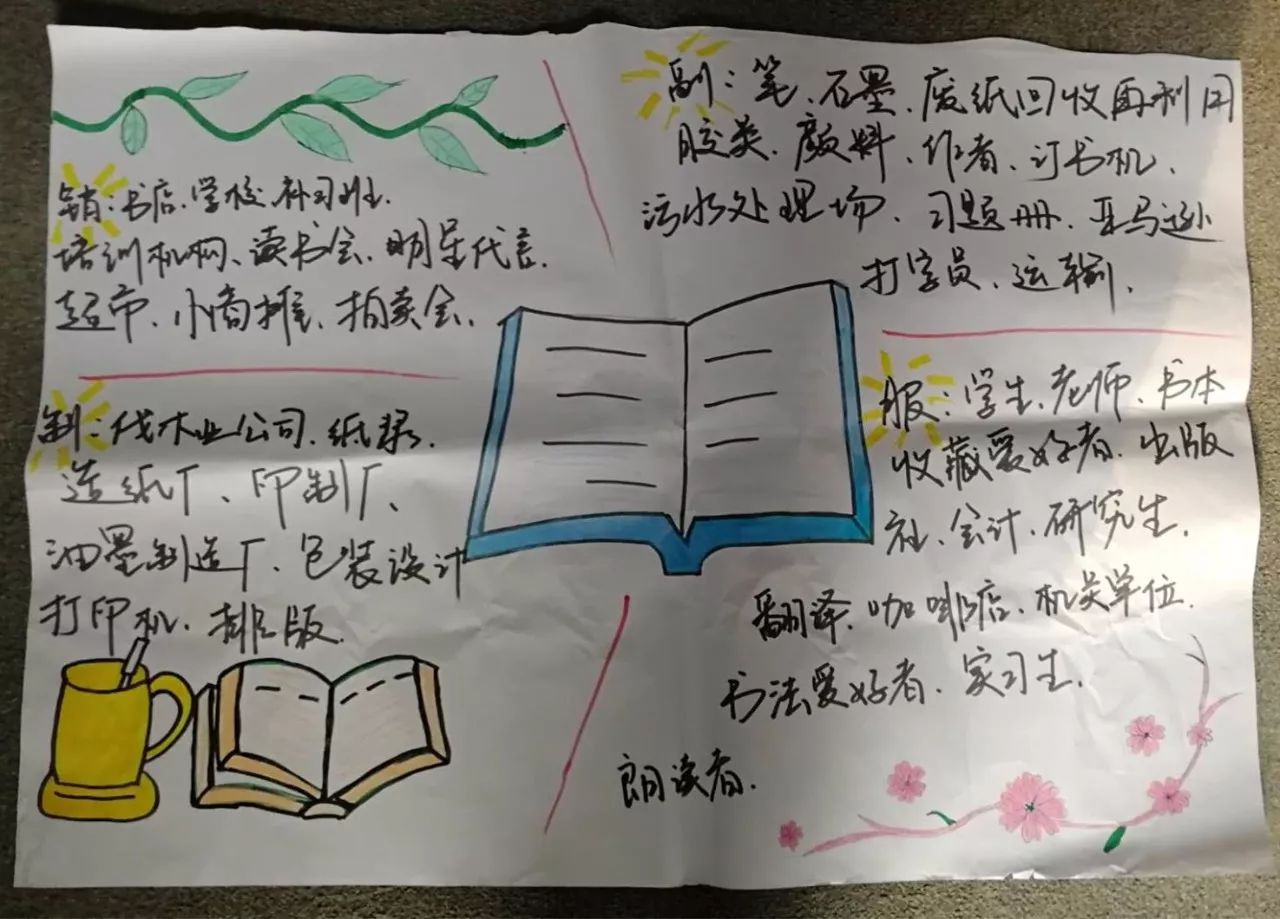 销:书店、学校、补习班.
培训机构、读书会、明星代言.
超市、小商摊、拍卖会.
制:伐木业公司、纸浆.
造纸厂、印制厂、
油墨制造厂、包装设计
打印机、排版.
副:笔、石墨、废纸回收再利用
胶类、颜料、作者、订书机、
污水处理场、习题册、亚马逊
打字员、运输.
服:学生、老师、书本
收藏爱好者、出版
社、会计、研究生.
翻译、咖啡店、机关单位.
书法爱好者、实习生.
朗读者.